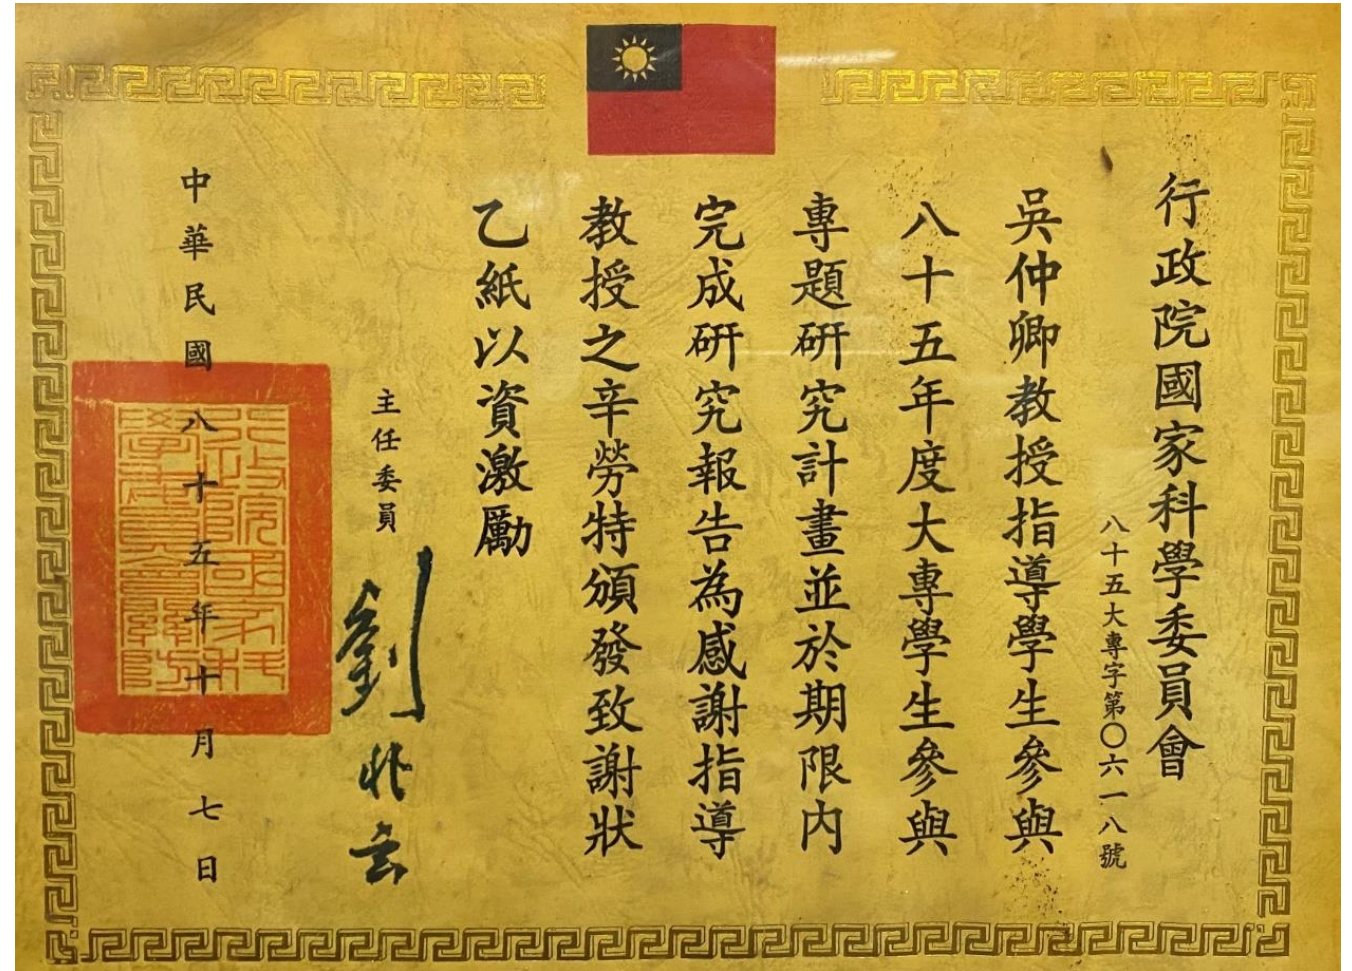 行政院國家科學委員會
八十五大專字第〇六一八號
吳仲卿教授指導學生參與
八十五年度大專學生參與
專題研究計畫並於期限內
完成研究報告為感謝指導
教授之辛勞特頒發致謝狀
乙紙以資激勵
主任委員
劉兆玄
中華民國八十五年十月七日
行政院國家科
學委員會關防